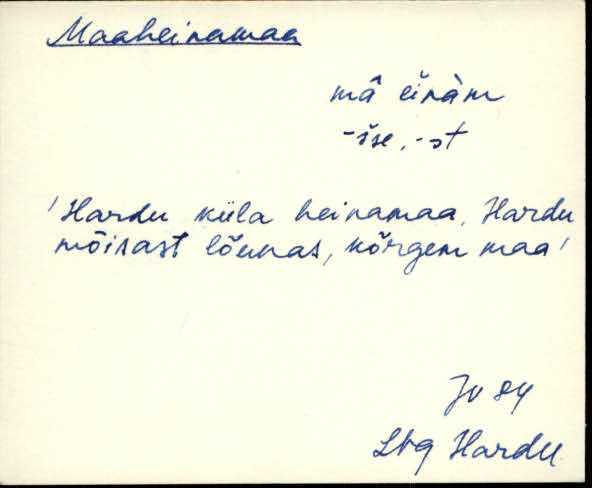 Maaheinamaa
mâ èi̯nàm
-šse, -st
'Hardu küla heinamaa, Hardu
mõisast lõunas, kõrgem maa'
JV 84
Lbg Hardu